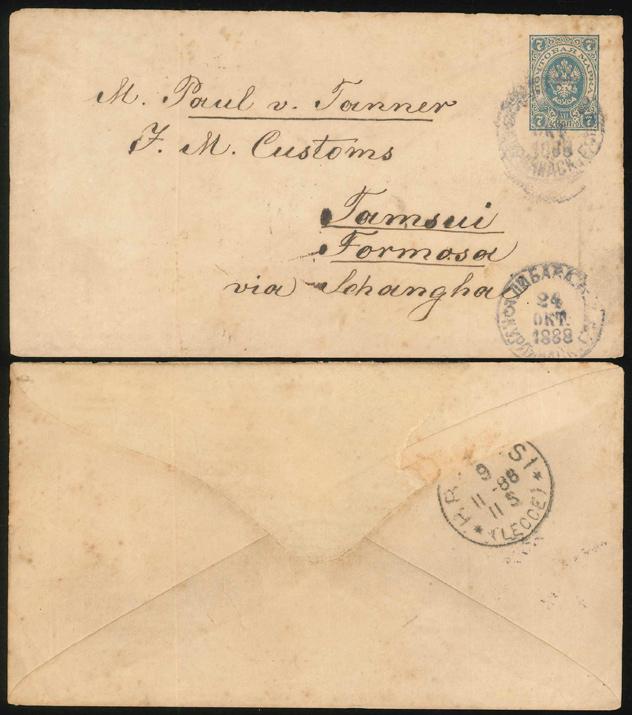 7 7
ПОЧТОВАЯ МАРКА
7 7
M. Paul v. Tanner
I. M. Customs
ОКТ.
1888
Tamsui
Formosa
via Schanghai
24
ОКТ.
1888
9
11 -88
11 S
(LECCE)